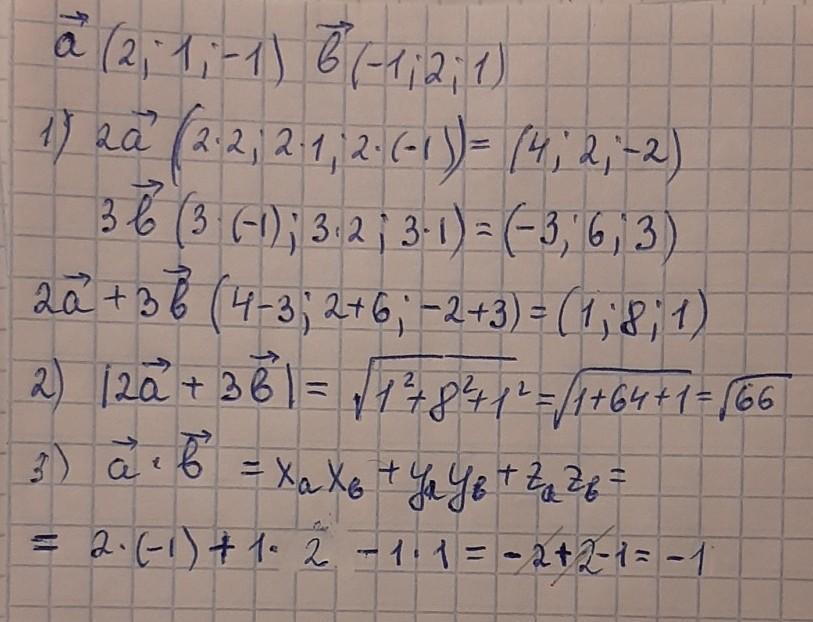 a⃗ (2; 1; -1) b⃗ (-1; 2; 1)
1) 2a⃗ (2·2; 2·1; 2·(-1)) = (4; 2; -2)
3b⃗ (3·(-1); 3·2; 3·1) = (-3; 6; 3)
2a⃗ + 3b⃗ (4-3; 2+6; -2+3) = (1; 8; 1)
2) |2a⃗ + 3b⃗| = √(1²+8²+1²) = √(1+64+1) = √66
3) a⃗ · b⃗ = xₐx_b + yₐy_b + zₐz_b =
= 2·(-1) + 1·2 - 1·1 = -2+2-1 = -1